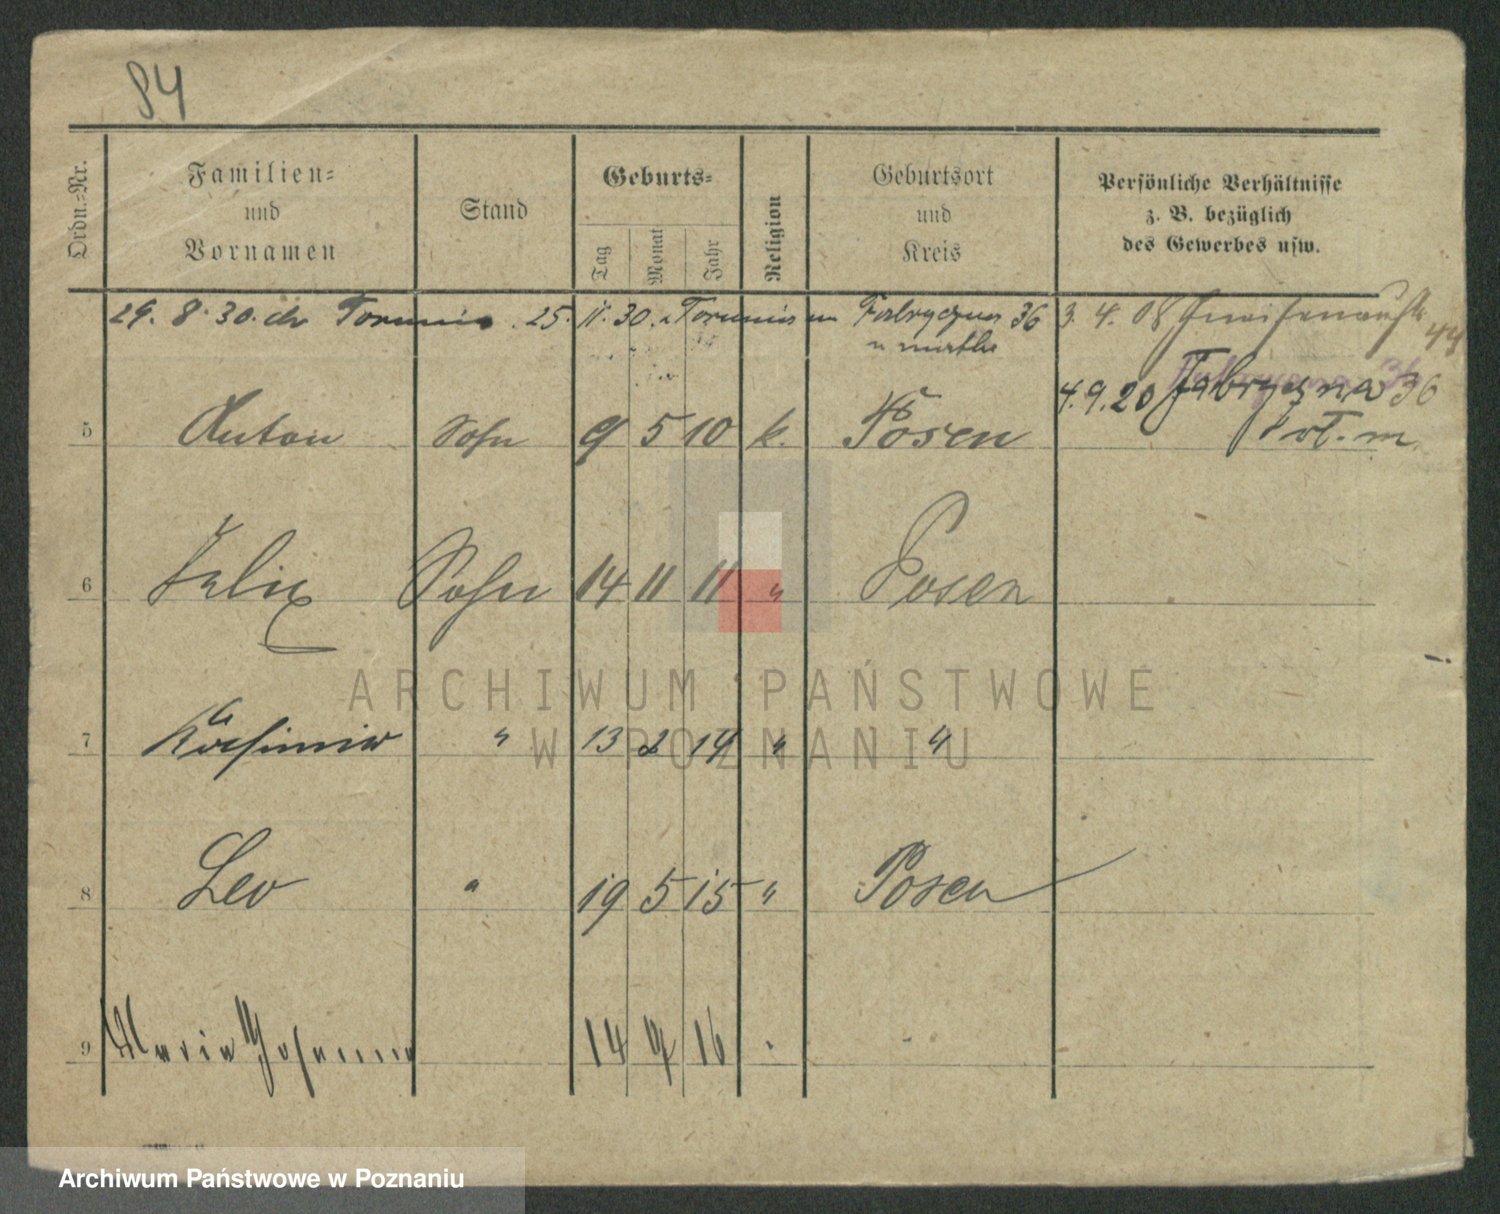 84
Ordn.-Nr.
Familien-
und
Vornamen
Stand
Geburts-
Tag
Monat
Jahr
Religion
Geburtsort
und
Kreis
Persönliche Verhältnisse
z. B. bezüglich
des Gewerbes usw.
29. 8. 30. do Torunia 25. 11. 30. z Torunia Fabryczna 36
3. 4. 08 Gneisenaustr. 44
4.9.20 Fabryczna 36
5 Anton Sohn 9 5 10 k. Posen
6 Felix Sohn 14 11 11 " Posen
7 Kasimir " 13 2 14 " "
8 Leo " 19 5 15 " Posen
9 Maria Johanna 14 9 16
ARCHIWUM PAŃSTWOWE
W POZNANIU
Archiwum Państwowe w Poznaniu